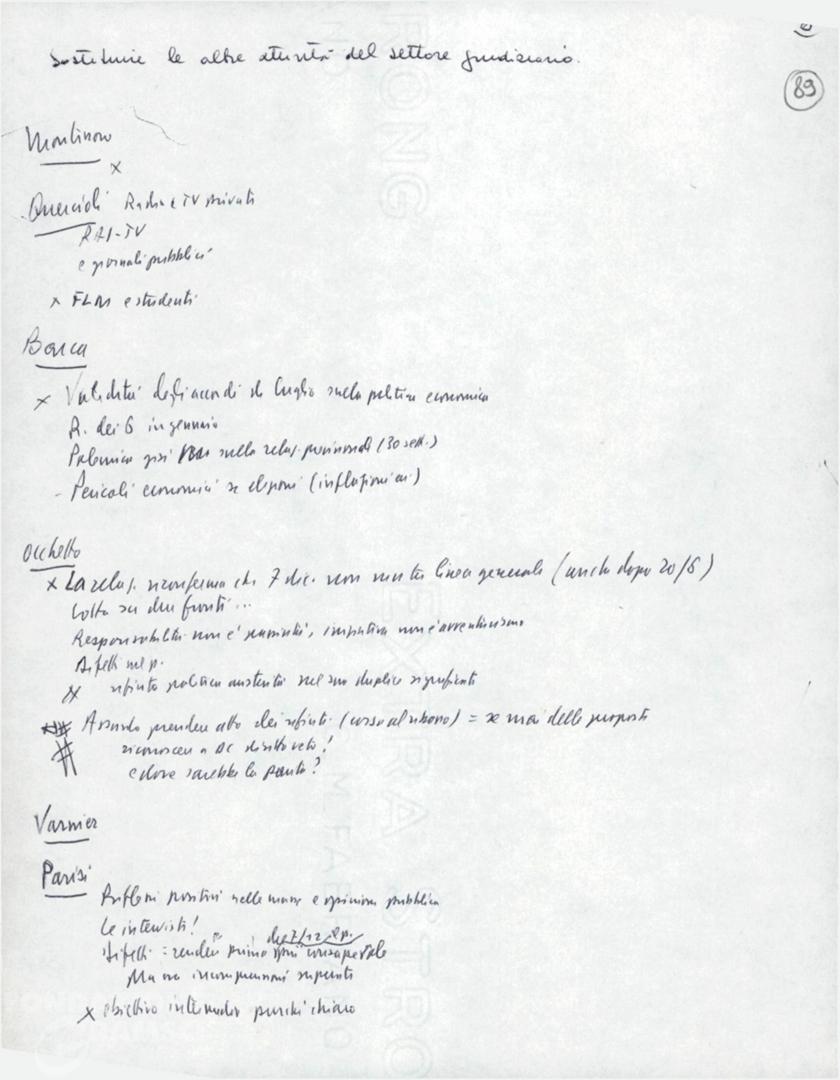 Sostituire le altre attività del settore giudiziario.
89
Montinaro
x
Quercioli Radio e TV private
RAI-TV
e giornali pubblici
x FLM e studenti
Barca
x Validità degli accordi di luglio sulla politica economica
R. dei 6 in gennaio
Polemica sulla relaz. previsionale (30 sett.)
- Pericoli economici se elezioni (inflazione)
Occhetto
x La relaz. riconferma che 7 dic. non muta linea generale (anche dopo 20/6)
Lotta su due fronti...
Responsabilità non è, iniziativa non è avventurismo
Difetti nel p.
x rifiuto politica austerità nel suo duplice significato
Assurdo prendere atto dei rifiuti = se mai delle proposte
riconoscere a DC diritto veto!
e dove sarebbe la parità?
Varnier
Parisi
Riflessi positivi nelle masse e opinione pubblica
Le interviste!
del 7/12
Difetti = rendere prima più consapevole
Ma ora incomprensioni superate
x obiettivo intermedio purché chiaro